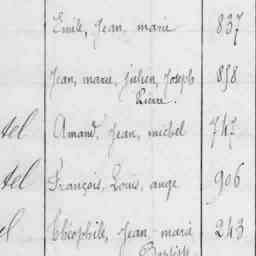 Emile, Jean, marie 837
Jean, marie, julien, Joseph 858
Pierre.
tel Amand, Jean, michel 747
tel François, Louis, ange 906
el Théophile, Jean-marie 243
Baptiste